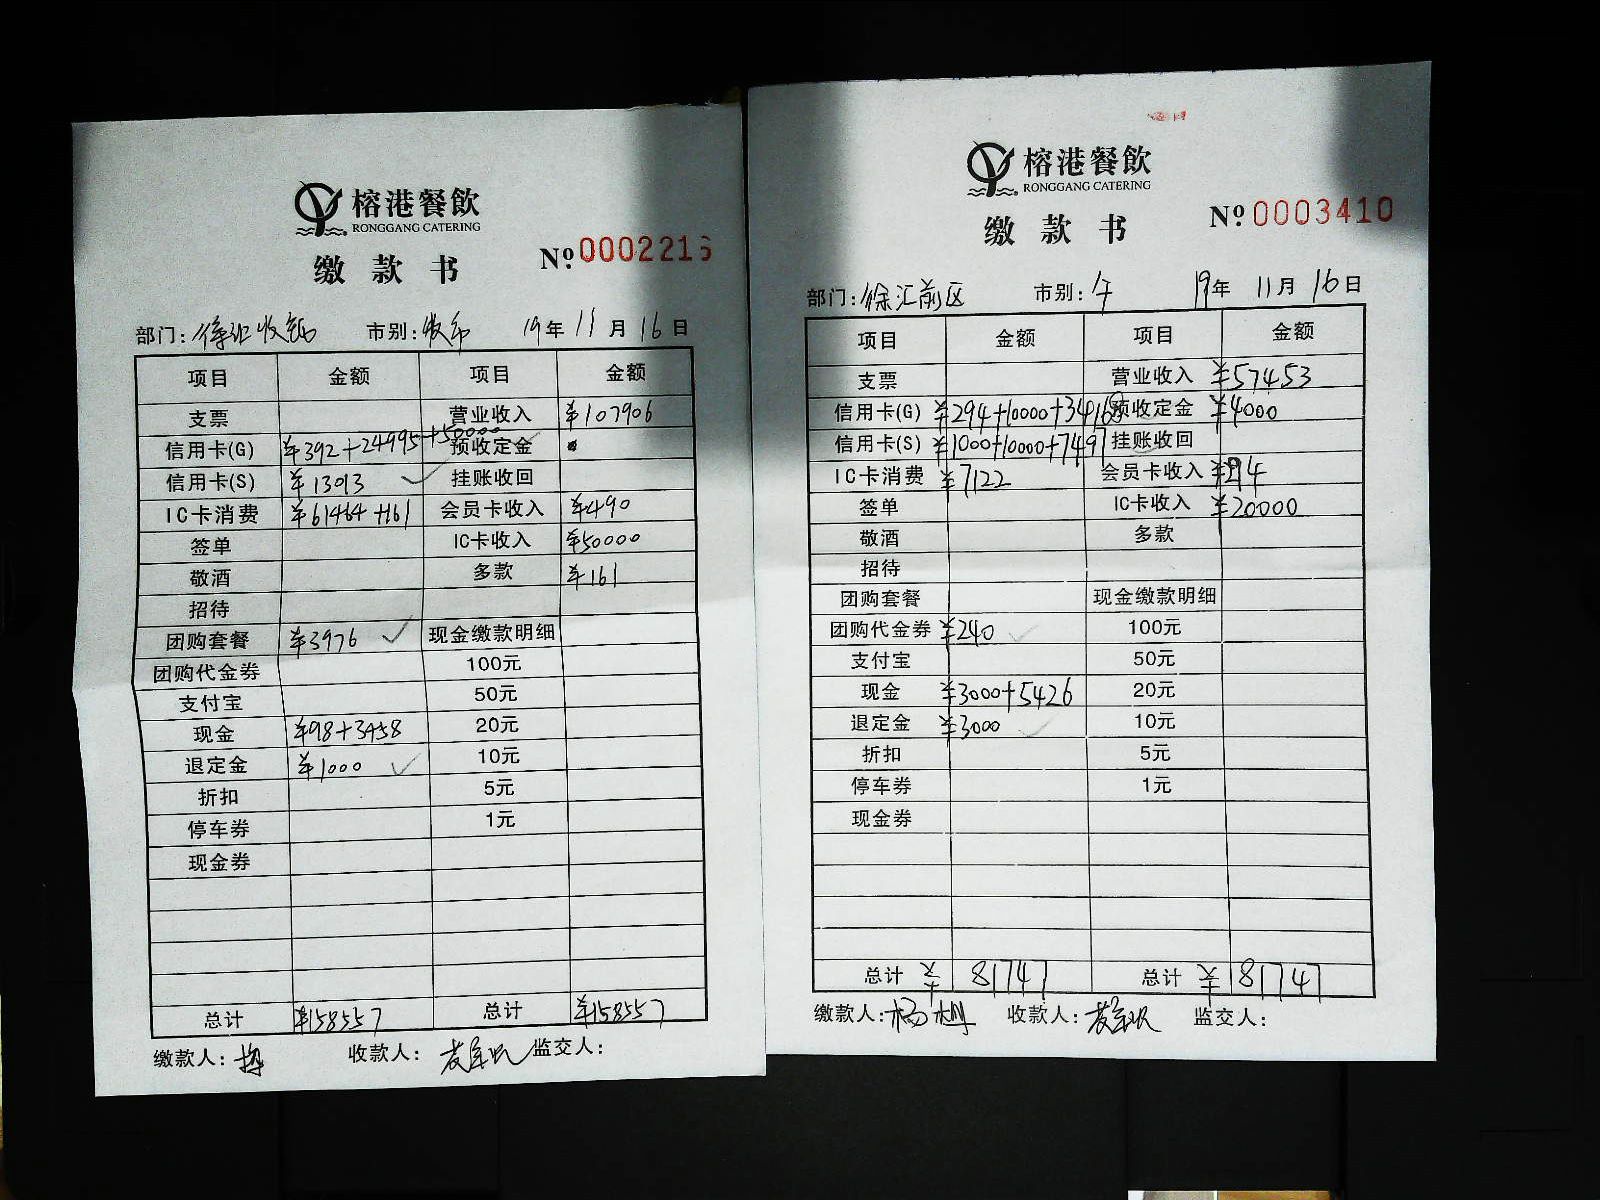 榕港餐飲
RONGGANG CATERING
缴款书
№ 000221
部门: 徐汇收 市别: 19年 11月 16日
项目 金额 项目 金额
支票 营业收入 ¥107906
信用卡(G) ¥392+24995+50000 预收定金
信用卡(S) ¥13013 挂账收回
IC卡消费 ¥61464+161 会员卡收入 ¥490
签单 IC卡收入 ¥50000
敬酒 多款 ¥161
招待
团购套餐 ¥3976 现金缴款明细
团购代金券 100元
支付宝 50元
现金 ¥98+3458 20元
退定金 ¥1000 10元
折扣 5元
停车券 1元
现金券
总计 ¥158557 总计 ¥158557
缴款人: 收款人: 监交人:
榕港餐飲
RONGGANG CATERING
缴款书
№ 0003410
部门: 徐汇前区 市别: 午 19年 11月 16日
项目 金额 项目 金额
支票 营业收入 ¥57453
信用卡(G) ¥294+10000+34168 预收定金 ¥4000
信用卡(S) ¥1000+10000+7497 挂账收回
IC卡消费 ¥7122 会员卡收入 ¥294
签单 IC卡收入 ¥20000
敬酒 多款
招待
团购套餐 现金缴款明细
团购代金券 ¥240 100元
支付宝 50元
现金 ¥3000+5426 20元
退定金 ¥3000 10元
折扣 5元
停车券 1元
现金券
总计 ¥81747 总计 ¥81747
缴款人: 杨 收款人: 监交人: